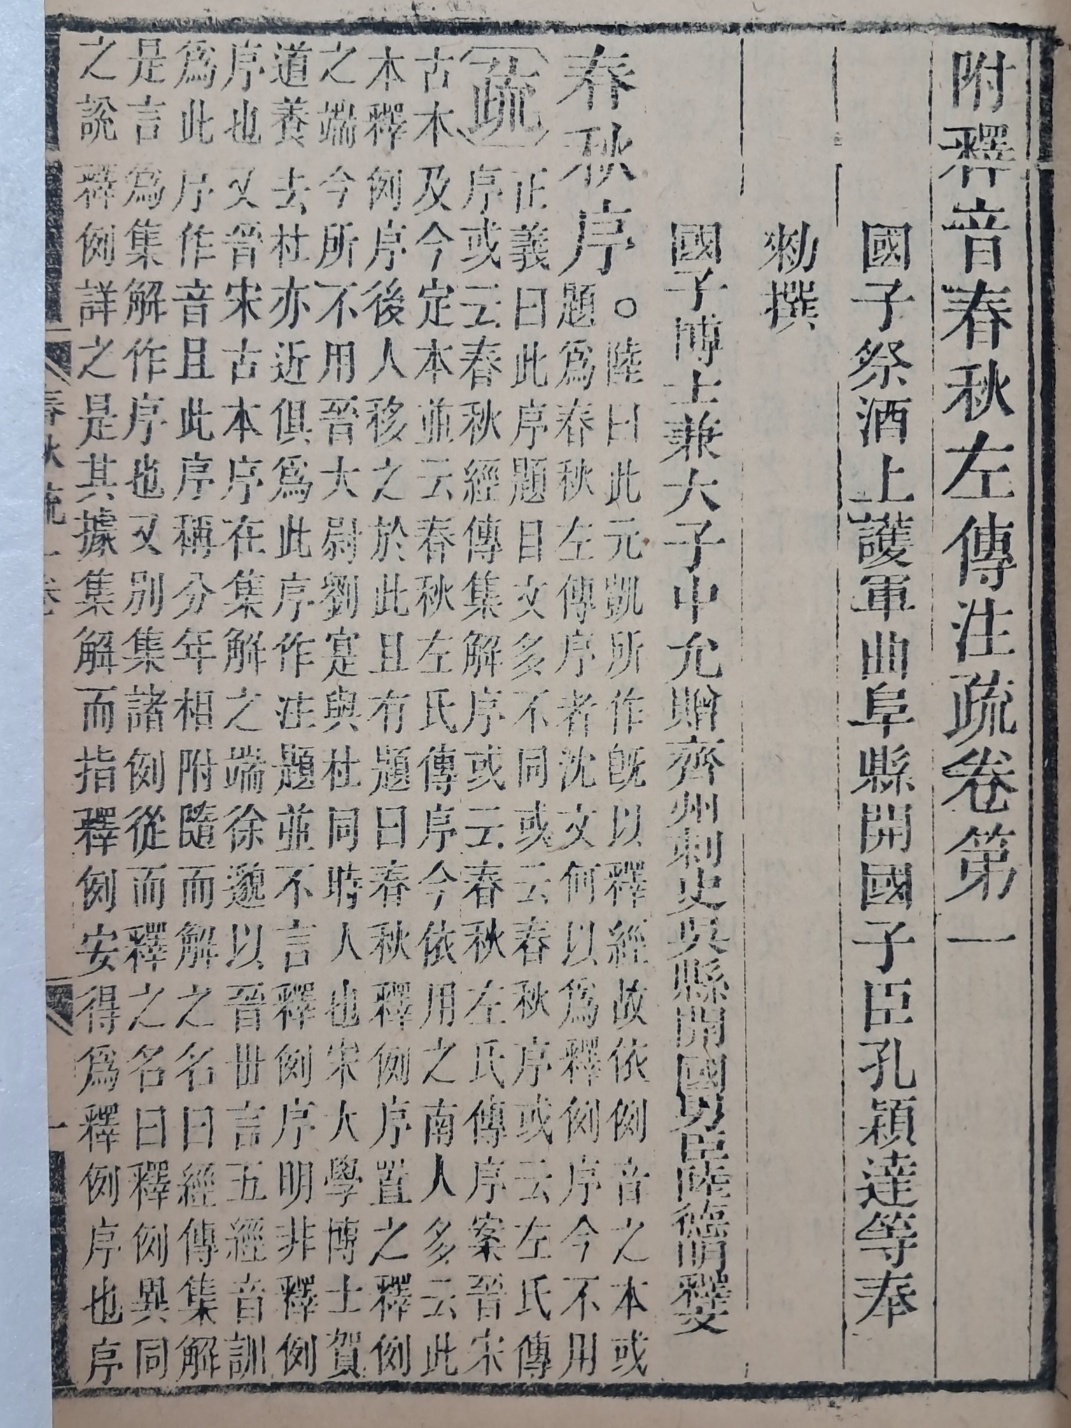 附釋音春秋左傳注疏卷第一
國子祭酒上護軍曲阜縣開國子臣孔穎達等奉
勑撰
國子博士兼大子中允贈齊州刺史吳縣開國男臣陸德明釋文
春秋序。陸曰此元凱所作旣以釋經故依例音之本或
題爲春秋左傳序者沈文何以爲釋例序今不用
疏正義曰此序題目文多不同或云春秋序或云左氏傳
序或云春秋經傳集解序或云春秋左氏傳序案晉宋
古木及今定本並云春秋左氏傳序今依用之南人多云此
本釋例序後人移之於此且有題曰春秋釋例序置之釋例
之端今所不用晉大尉劉寔與杜同時人也宋大學博士賀
道養去杜亦近俱爲此序作注題並不言釋例序明非釋例
序也又晉宋古本序在集解之端徐邈以晉丗言五經音訓
爲此序作音且此序稱分年相附隨而解之名曰經傳集解
是言爲集解作序也又別集諸例從而釋之名曰釋例異同
之說釋例詳之是其據集解而指釋例安得爲釋例序也序
春秋疏一卷
一